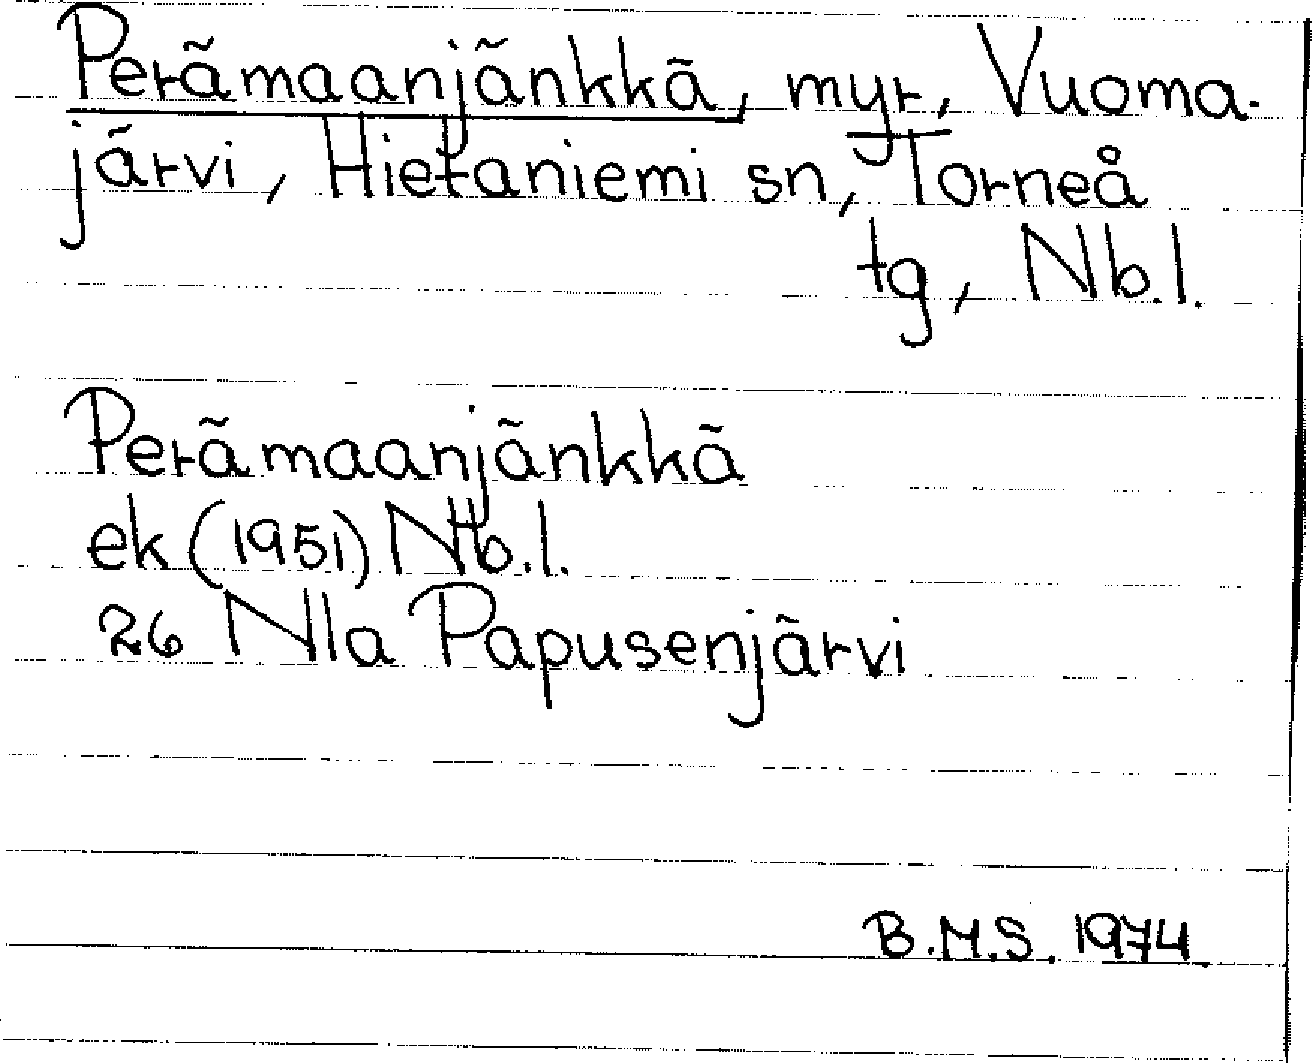 Perämaanjänkkä, myr, Vuoma-
järvi, Hietaniemi sn, Torneå
tg, Nb.l.
Perämaanjänkkä
ek (1951) Nb.l.
26 Nla Papusenjärvi
B.M.S. 1974